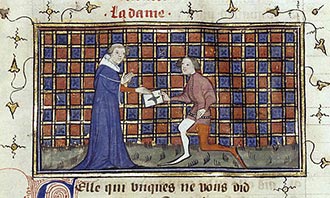 La dame.
Celle qui vnques ne vous vid